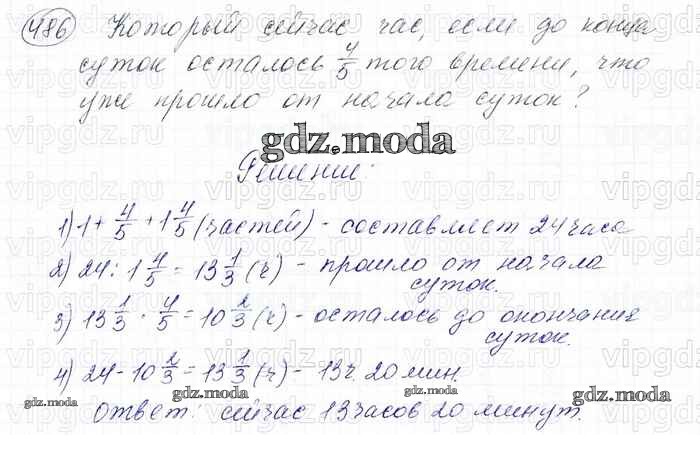 486 Который сейчас час, если до конца
суток осталось 4/5 того времени, что
уже прошло от начала суток?
gdz.moda
Решение:
1) 1 + 4/5 + 1 4/5 (частей) - составляет 24 часа
2) 24 : 1 4/5 = 13 1/3 (ч) - прошло от начала
суток.
3) 13 1/3 · 4/5 = 10 2/3 (ч) - осталось до окончания
суток.
4) 24 - 10 2/3 = 13 1/3 (ч) - 13ч. 20 мин.
gdz.moda
gdz.moda
gdz.moda
Ответ: сейчас 13 часов 20 минут.
vipgdz.ru